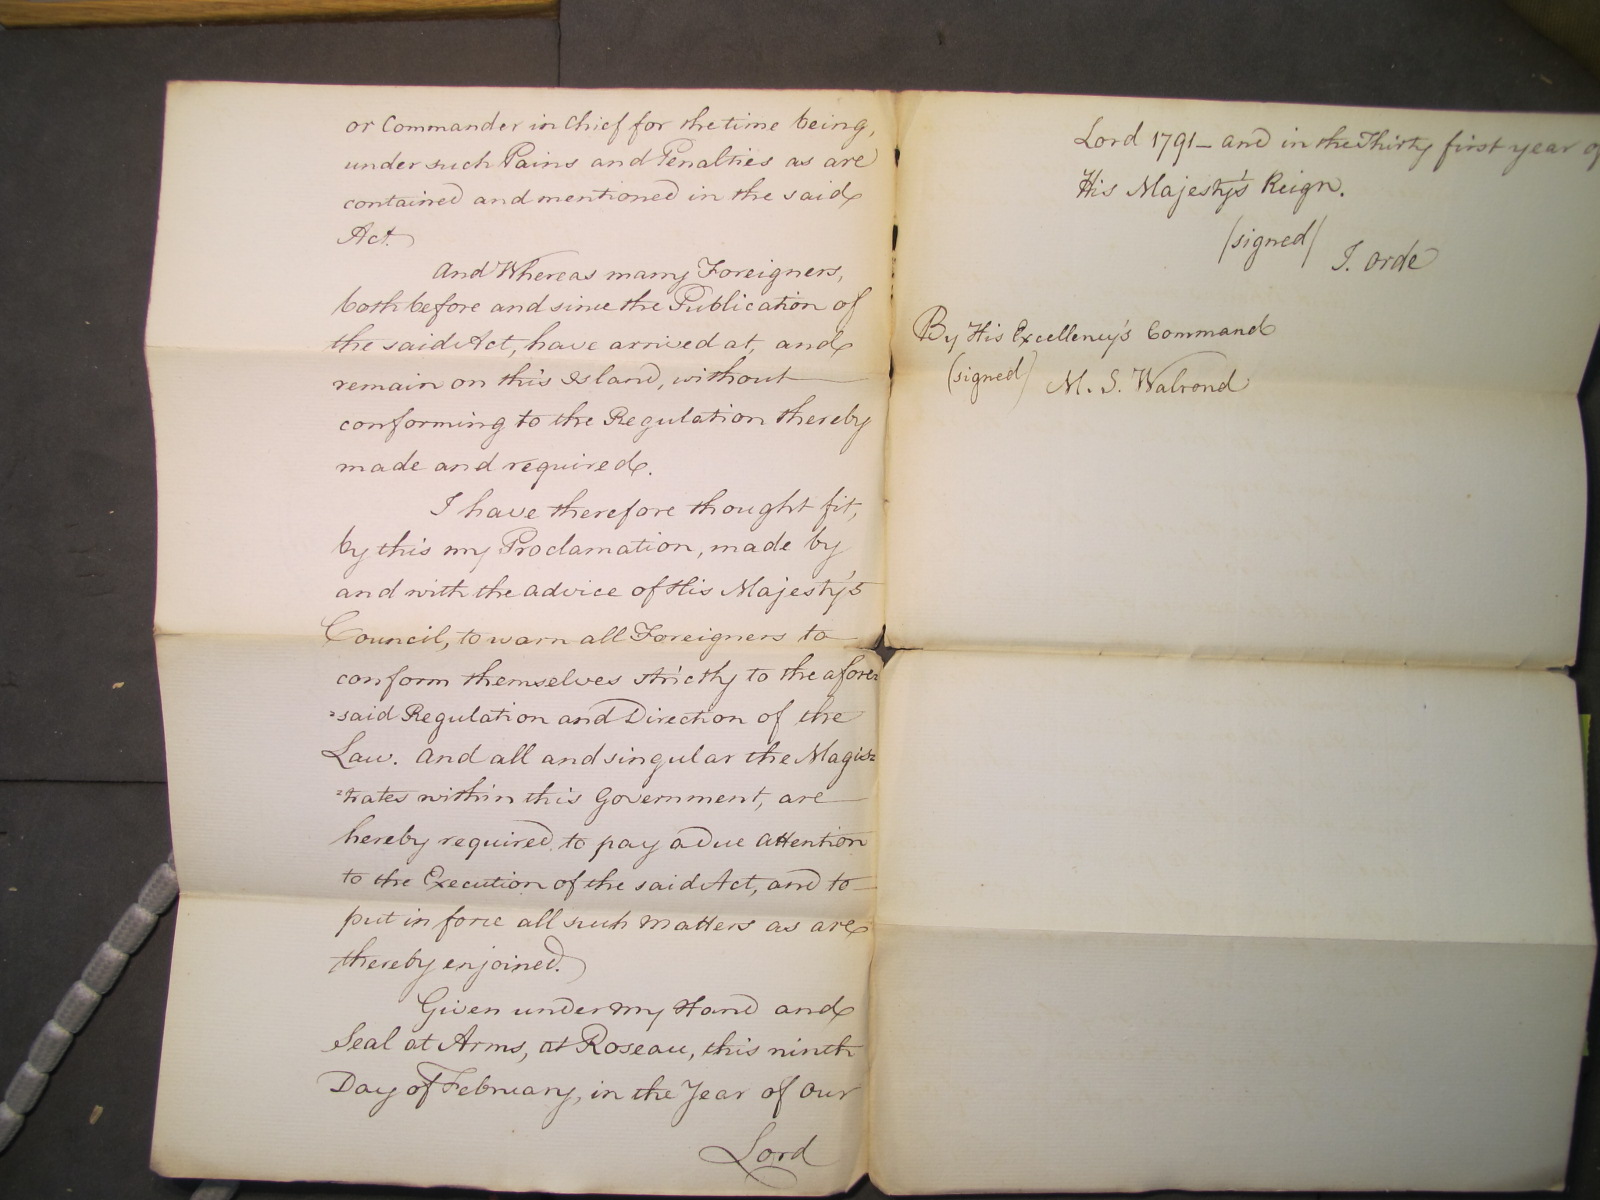 or Commander in Chief for the time being,
under such Pains and Penalties as are
contained and mentioned in the said
Act.
And Whereas many Foreigners,
both before and since the Publication of
the said Act, have arrived at, and
remain on this Island, without
conforming to the Regulation thereby
made and required.
I have therefore thought fit,
by this my Proclamation, made by
and with the advice of His Majesty's
Council, to warn all Foreigners to
conform themselves strictly to the afore=
=said Regulation and Direction of the
Law. And all and singular the Magis=
=trates within this Government, are
hereby required to pay a Due Attention
to the Execution of the said Act, and to
put in force all such Matters as are
thereby enjoined.
Given under my Hand and
Seal at Arms, at Roseau, this ninth
Day of February, in the Year of our
Lord
Lord 1791 — and in the Thirty first year of
His Majesty's Reign.
(signed) J. Orde
By His Excellency's Command
(signed) M. S. Walrond